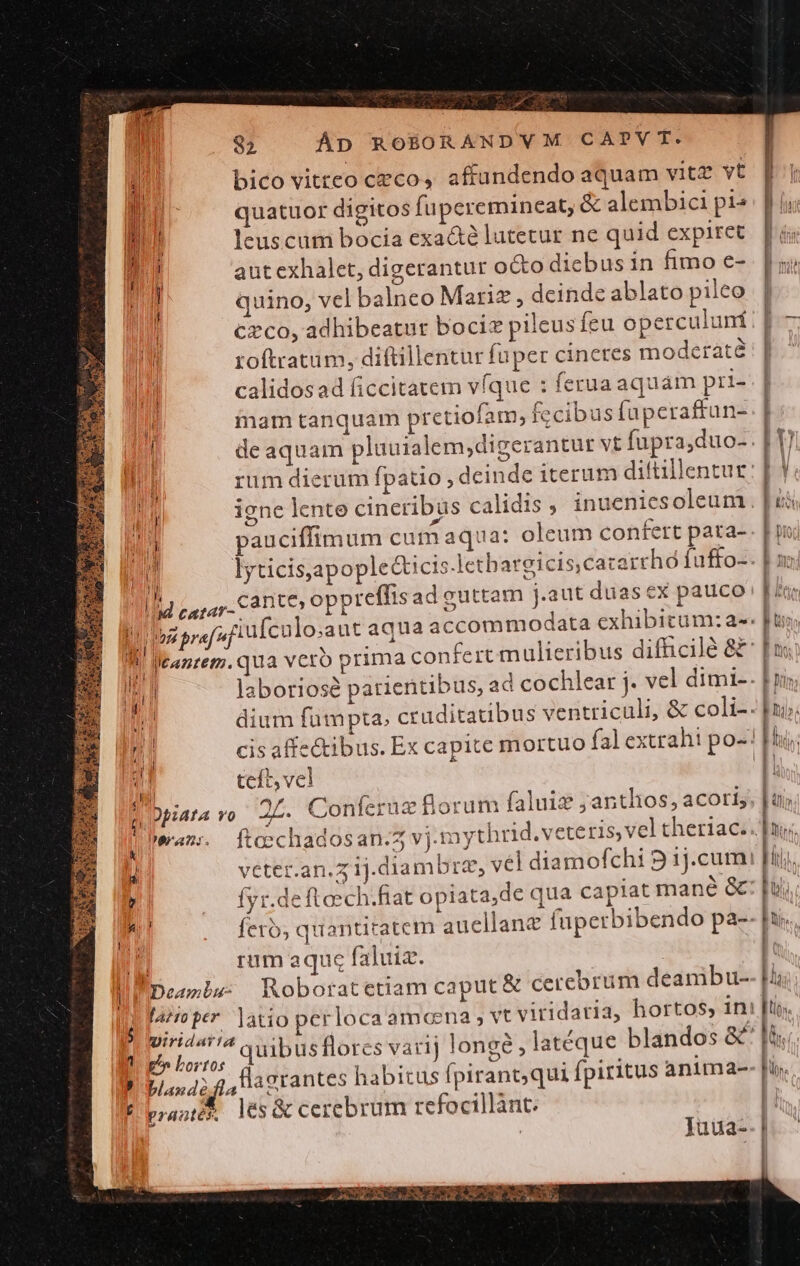 82 AD ROBORANDVM CAPVT.
bico vitreo cæco, affundendo aquam vitæ vt
quatuor digitos ſuperemineat, & alembici pi-
leus cum bocia exactè lutetur ne quid expiret
aut exhalet, digerantur octo diebus in fimo e-
quino, vel balneo Mariæ, deinde ablato pileo
cæco, adhibeatur bociæ pileus ſeu operculum
roſtratum, diſtillentur ſuper cineres moderatè
calidos ad ſiccitatem vſque : ſerua aquam pri-
mam tanquam pretioſam, fecibus ſuperaffun-
de aquam pluuialem, digerantur vt ſupra, duo-
rum dierum ſpatio, deinde iterum diſtillentur
igne lento cineribus calidis, inuenies oleum
pauciſſimum cum aqua: oleum confert para-
lyticis, apoplecticis. lethargicis, catarrhó ſuffo-
Id catar- cante, oppreſſis ad guttam j. aut duas ex pauco
bū præfo iuſculo, aut aqua accommodata exhibitum: a-
cantem. qua verò prima confert mulieribus difficilè &
laboriosè parientibus, ad cochlear j. vel dimi-
dium ſumpta, cruditatibus ventriculi, & coli-
cis affectibus. Ex capite mortuo ſal extrahi po-
teſt, vel
Opiata ro ℞. Conſeruæ florum ſaluiæ, anthos, acoris,
borans. ſtœchados an. ℥ vj. mythrid. veteris, vel theriac.
veter. an. ʒ ij. diambræ, vel diamoſchi ℈ ij. cum
ſyr. de ſtœch. fiat opiata, de qua capiat manè &
ſerò, quantitatem auellanæ ſuperbibendo pa-
rum aquę ſaluiæ.
Deambu- Roborat etiam caput & cerebrum deambu-
latio per latio per loca amœna, vt viridaria, hortos, in
viridaria quibus flores varij longè, latéque blandos &
& hortos flagrantes habitus ſpirant, qui ſpiritus anima-
blandè fla
grantes. les & cerebrum refocillant.
Iuua-